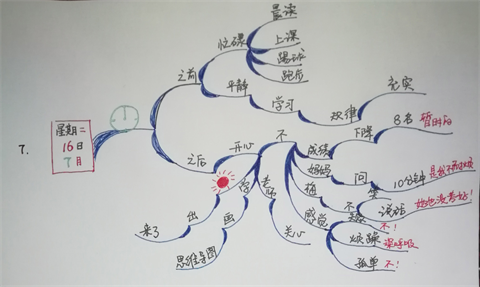 7.
星期二
16日
7月
之前
忙碌
早读
上课
踢球
跑步
平静
学习
规律
充实
之后
开心
不
成绩
下降
8名
暂时的
妈妈
问
10分钟
抱
不
说话
感觉
不!
烦躁
深呼吸
孤单
不!
老师
关心
学
画
思维导图
出
来了